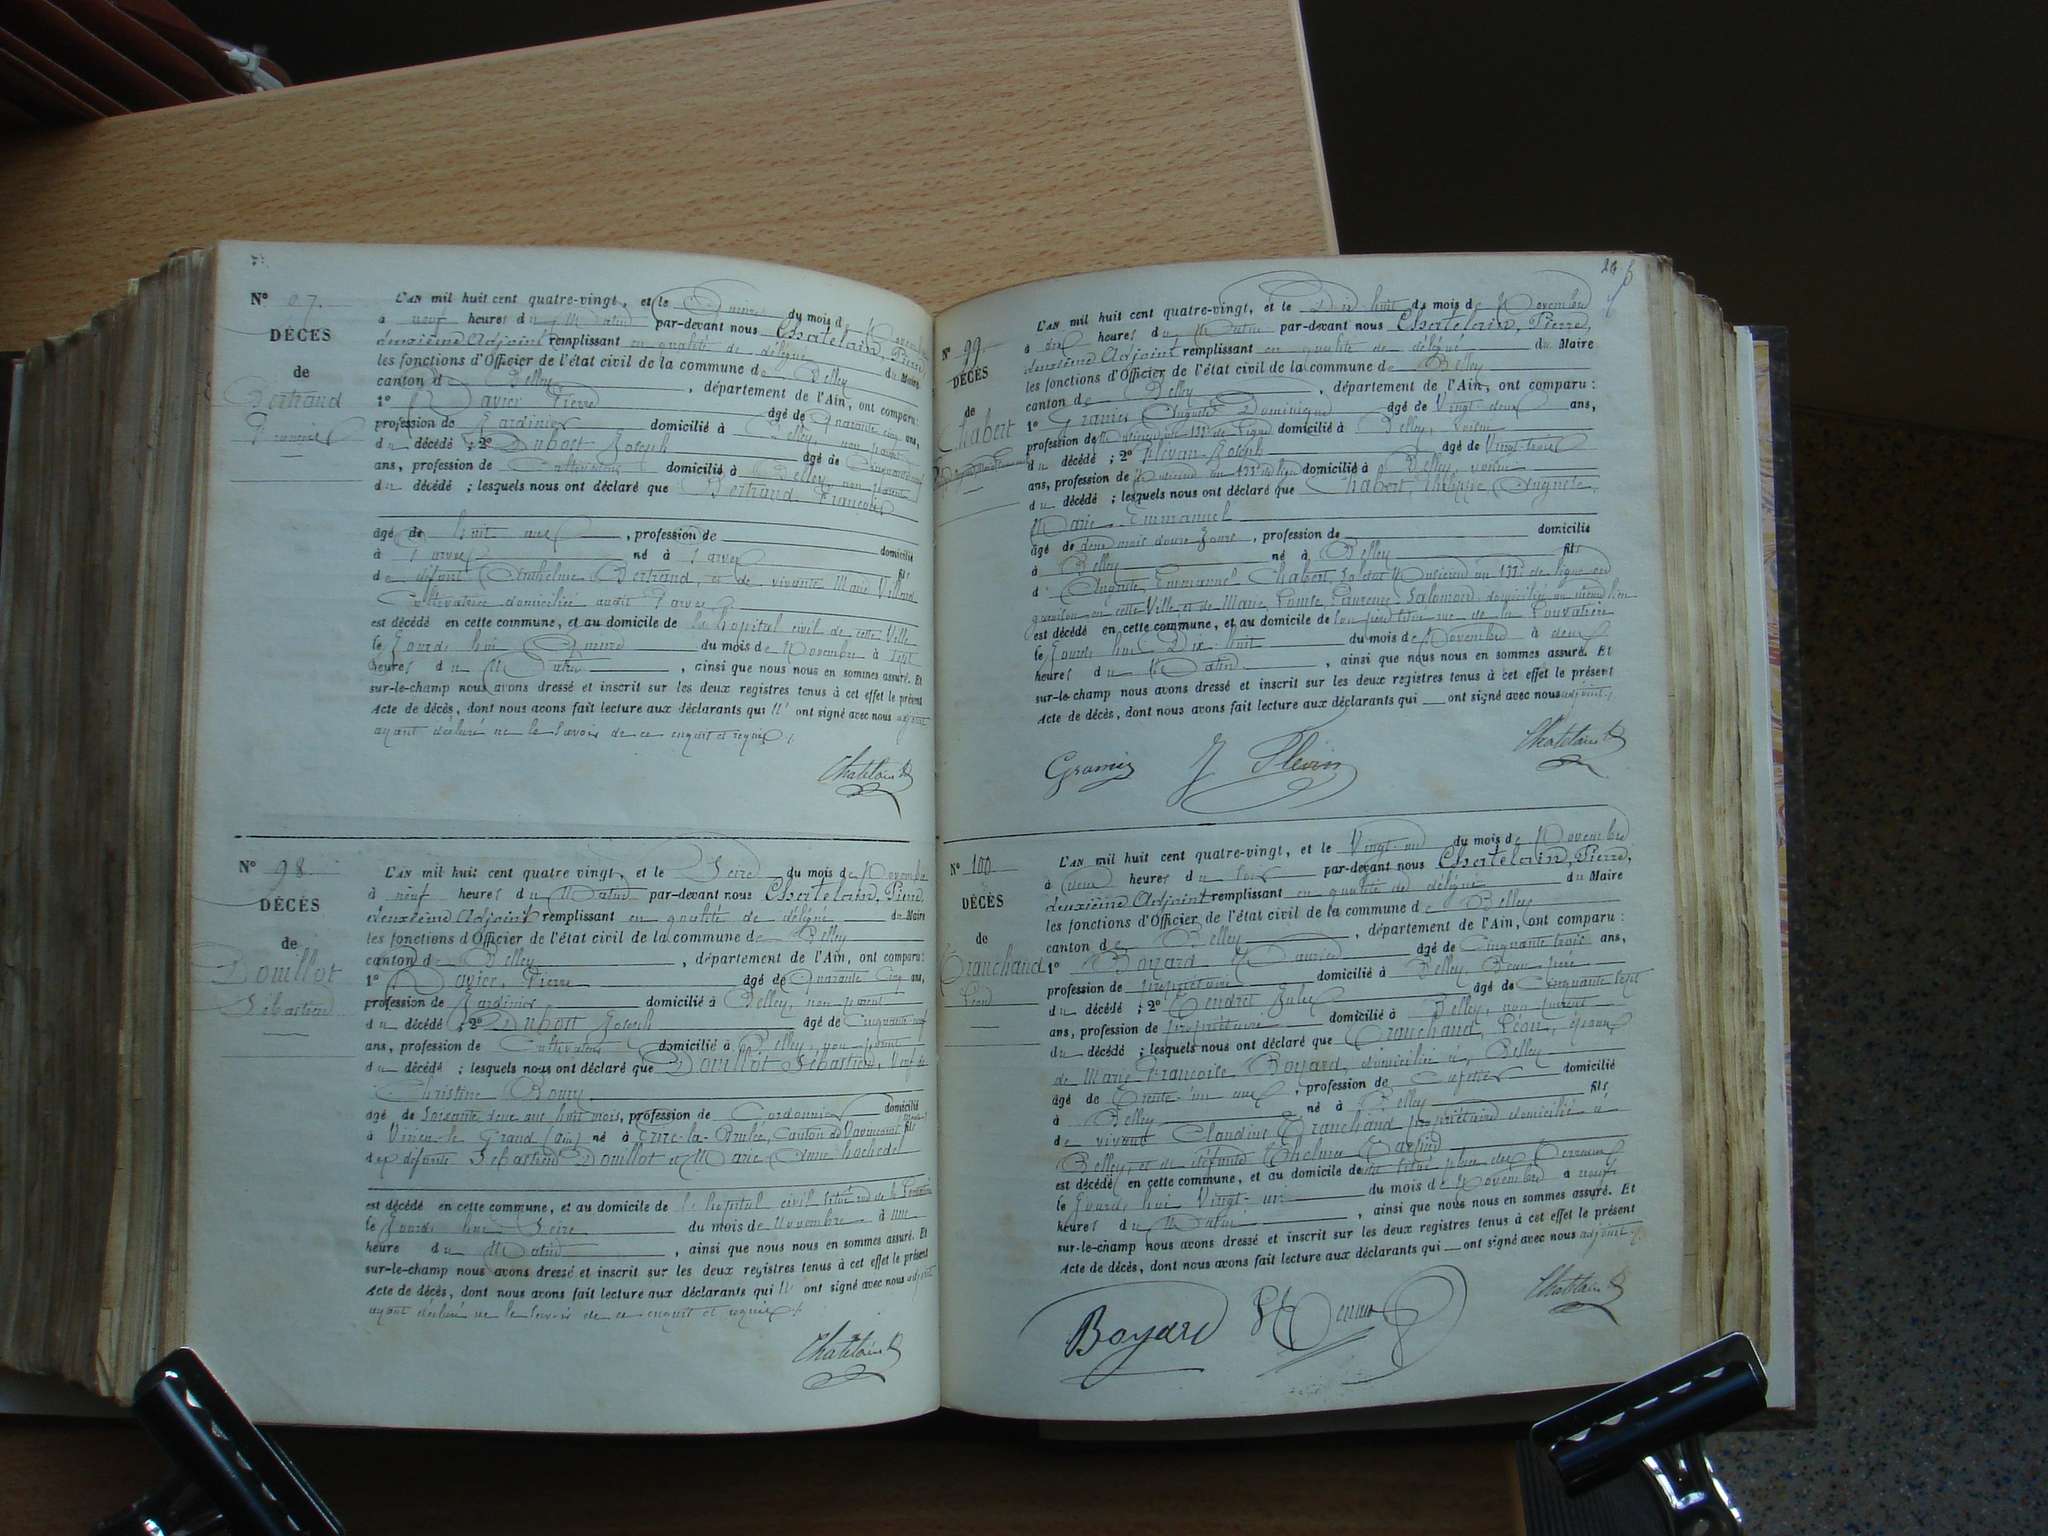 N° 97.
DÉCÈS
de
Bertrand
François
L'AN mil huit cent quatre-vingt, et le Quinze du mois de Novembre
à neuf heures du Matin par-devant nous Chatelain, Pierre,
deuxième Adjoint remplissant en qualité de délégué du Maire
les fonctions d'Officier de l'état civil de la commune de Belley
canton de Belley, département de l'Ain, ont comparu :
1° Pierre âgé de Quarante cinq ans,
profession de Jardinier domicilié à Belley, non parent
du décédé ; 2° Dubost Joseph âgé de Cinquante neuf
ans, profession de Cultivateur domicilié à Belley, non parent
du décédé ; lesquels nous ont déclaré que Bertrand François
âgé de huit ans, profession de domicilié
à Parves né à Parves fils
de défunt Anthelme Bertrand, et de vivante Marie Villard
Cultivatrice domiciliée audit Parves
est décédé en cette commune, et au domicile de l'hôpital civil de cette Ville
le Jourd'hui Quinze du mois de Novembre à sept
heures du Matin, ainsi que nous nous en sommes assuré. Et
sur-le-champ nous avons dressé et inscrit sur les deux registres tenus à cet effet le présent
Acte de décès, dont nous avons fait lecture aux déclarants qui n' ont signé avec nous adjoint
ayant déclaré ne le savoir de ce enquis et requis ./.
Chatelain
N° 98.
DÉCÈS
de
Douillot
Sébastien
L'AN mil huit cent quatre vingt, et le Seize du mois de Novembre
à neuf heures du Matin par-devant nous Chatelain, Pierre,
deuxième Adjoint remplissant en qualité de délégué du Maire
les fonctions d'Officier de l'état civil de la commune de Belley
canton de Belley, département de l'Ain, ont comparu :
1° Pierre âgé de Quarante Cinq ans,
profession de Jardinier domicilié à Belley, non parent
du décédé ; 2° Dubost Joseph âgé de Cinquante-neuf
ans, profession de Cultivateur domicilié à Belley, non parent
du décédé ; lesquels nous ont déclaré que Douillot Sébastien, Veuf de
Christine
âgé de Soixante deux ans huit mois, profession de Cordonnier domicilié
à Virieu-le-Grand (ain) né à la-Brulée, Canton de fils
des défunts Sébastien Douillot et Marie Anne
est décédé en cette commune, et au domicile de l'hôpital civil
le Jourd'hui Seize du mois de Novembre à une
heure du Matin, ainsi que nous nous en sommes assuré. Et
sur-le-champ nous avons dressé et inscrit sur les deux registres tenus à cet effet le présent
Acte de décès, dont nous avons fait lecture aux déclarants qui n' ont signé avec nous adjoint
ayant déclaré ne le savoir de ce enquis et requis ./.
Chatelain
N° 99.
DÉCÈS
de
Chabert
L'AN mil huit cent quatre-vingt, et le Dix huit du mois de Novembre
à dix heures du Matin par-devant nous Chatelain, Pierre,
deuxième Adjoint remplissant en qualité de délégué du Maire
les fonctions d'Officier de l'état civil de la commune de Belley
canton de Belley, département de l'Ain, ont comparu :
1° Granier Auguste Dominique âgé de Vingt-deux ans,
profession de Musicien au 133e de Ligne domicilié à Belley, voisin
du décédé ; 2° Joseph âgé de Vingt-trois
ans, profession de Musicien au 133e de ligne domicilié à Belley, voisin
du décédé ; lesquels nous ont déclaré que Chabert, Auguste,
Marie Emmanuel
âgé de deux mois douze Jours, profession de domicilié
à Belley né à Belley fils
d' Auguste Emmanuel Chabert, soldat Musicien au 133e de ligne en
garnison en cette Ville et de Marie Laurence Salomond, domiciliés au même lieu
est décédé en cette commune, et au domicile de son père situé rue de la
le Jourd'hui Dix-huit du mois de Novembre à deux
heures du Matin, ainsi que nous nous en sommes assuré. Et
sur-le-champ nous avons dressé et inscrit sur les deux registres tenus à cet effet le présent
Acte de décès, dont nous avons fait lecture aux déclarants qui ont signé avec nous adjoint ./.
Granier J Plevin Chatelain
N° 100
DÉCÈS
de
Tranchand
Léon
L'AN mil huit cent quatre-vingt, et le Vingt-un du mois de Novembre
à deux heures du soir par-devant nous Chatelain, Pierre,
deuxième Adjoint remplissant en qualité de délégué du Maire
les fonctions d'Officier de l'état civil de la commune de Belley
canton de Belley, département de l'Ain, ont comparu :
1° Boyard âgé de Cinquante trois ans,
profession de propriétaire domicilié à Belley, Beau père
du décédé ; 2° Tendret Jules âgé de Cinquante sept
ans, profession de propriétaire domicilié à Belley, non parent
du décédé ; lesquels nous ont déclaré que Tranchand, Léon, époux
de Marie Françoise Boyard, domiciliée à Belley
âgé de Trente-un ans, profession de Cafetier domicilié
à Belley né à Belley fils
de vivant Claudius Tranchand propriétaire domicilié à
Belley, et de défunte
est décédé en cette commune, et au domicile de situé place des Terreaux
le Jourd'hui Vingt-un du mois de Novembre à neuf
heures du Matin, ainsi que nous nous en sommes assuré. Et
sur-le-champ nous avons dressé et inscrit sur les deux registres tenus à cet effet le présent
Acte de décès, dont nous avons fait lecture aux déclarants qui ont signé avec nous adjoint ./.
Boyard Chatelain